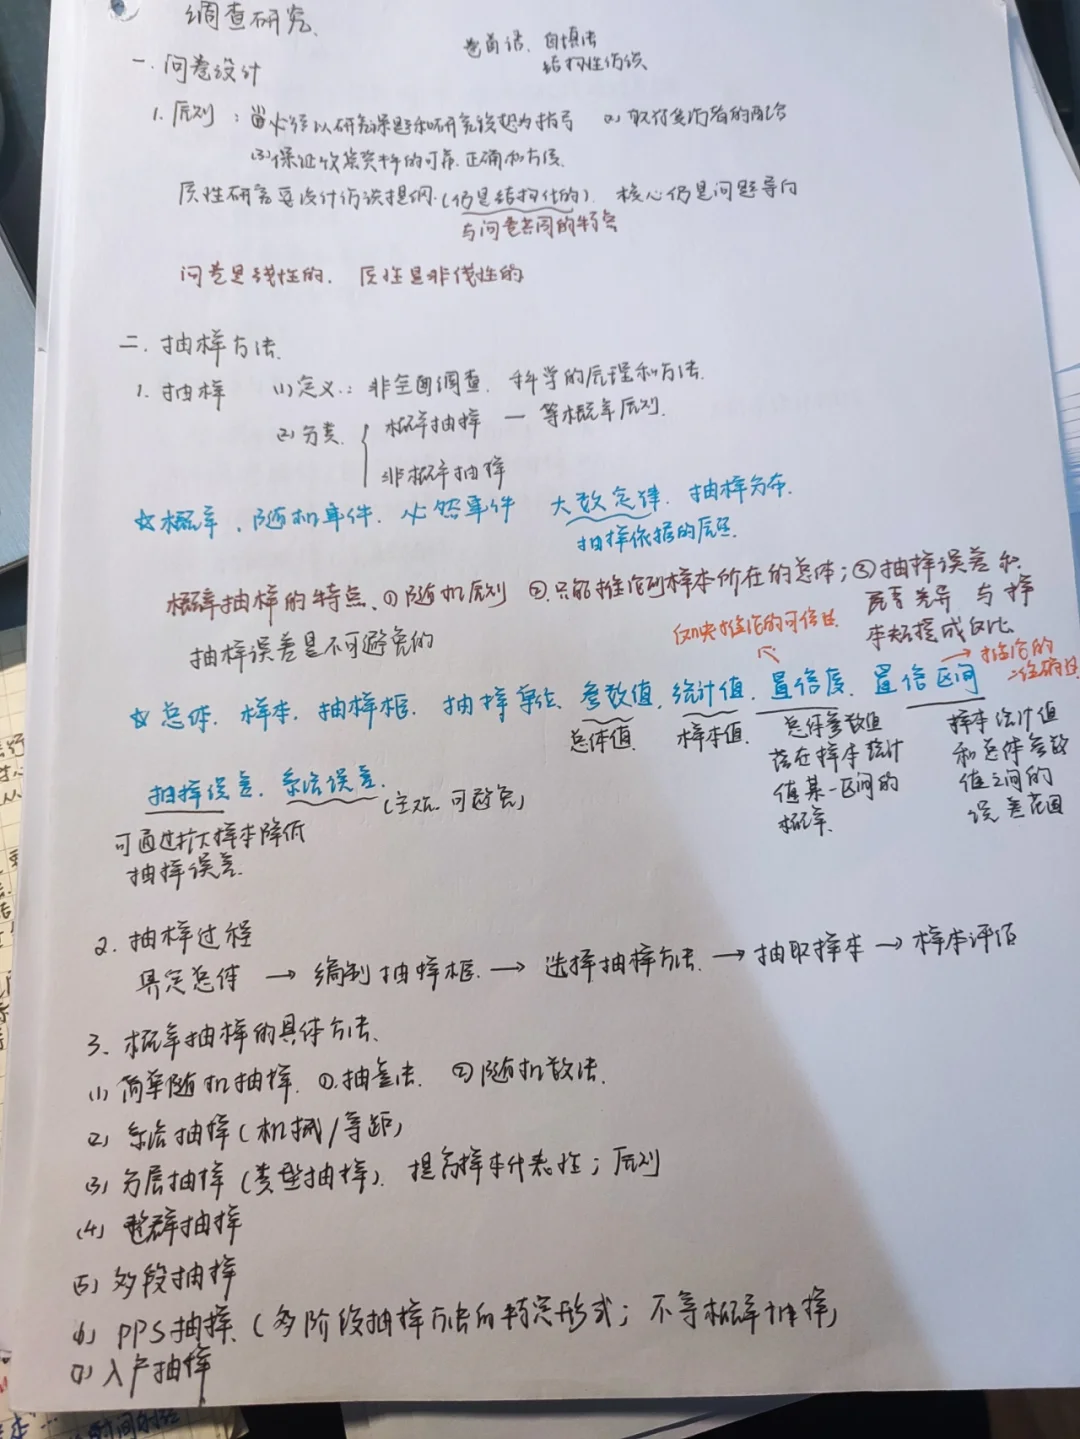 调查研究
卷首语、自填法
结构性访谈
一. 问卷设计
1. 原则：(1)必须以研究课题和研究设想为指导 (2)取得受访者的配合
(3)保证收集资料的可靠、正确和方便.
质性研究要设计访谈提纲.(仍是结构化的). 核心仍是问题导向
与问卷共同的特点
问卷是线性的. 质性是非线性的
二. 抽样方法.
1. 抽样 (1)定义：非全面调查. 科学的原理和方法.
(2)分类. 概率抽样 — 等概率原则.
非概率抽样
☆概率、随机事件、必然事件 大数定律、抽样分布.
抽样依据的原理.
概率抽样的特点. ①随机原则 ②只能推论到样本所在的总体；③抽样误差和
总体差异 与样
本规模成反比
抽样误差是不可避免的
反映推论的可信性
→推论的
准确性
☆总体、样本、抽样框、抽样单位、参数值、统计值、置信度、置信区间
总体值 样本值. 总体参数值
落在样本统计
值某一区间的
概率.
样本统计值
和总体参数
值之间的
误差范围
抽样误差、系统误差.
(主观. 可避免)
可通过扩大样本降低
抽样误差.
2. 抽样过程
界定总体 → 编制抽样框. → 选择抽样方法. → 抽取样本 → 样本评估
3. 概率抽样的具体方法.
(1) 简单随机抽样. ①抽签法. ②随机数法.
(2) 系统抽样(机械/等距)
(3) 分层抽样(类型抽样). 提高样本代表性；原则
(4) 整群抽样
(5) 多段抽样
(6) PPS抽样. (多阶段抽样方法的特定形式；不等概率抽样)
(7) 入户抽样